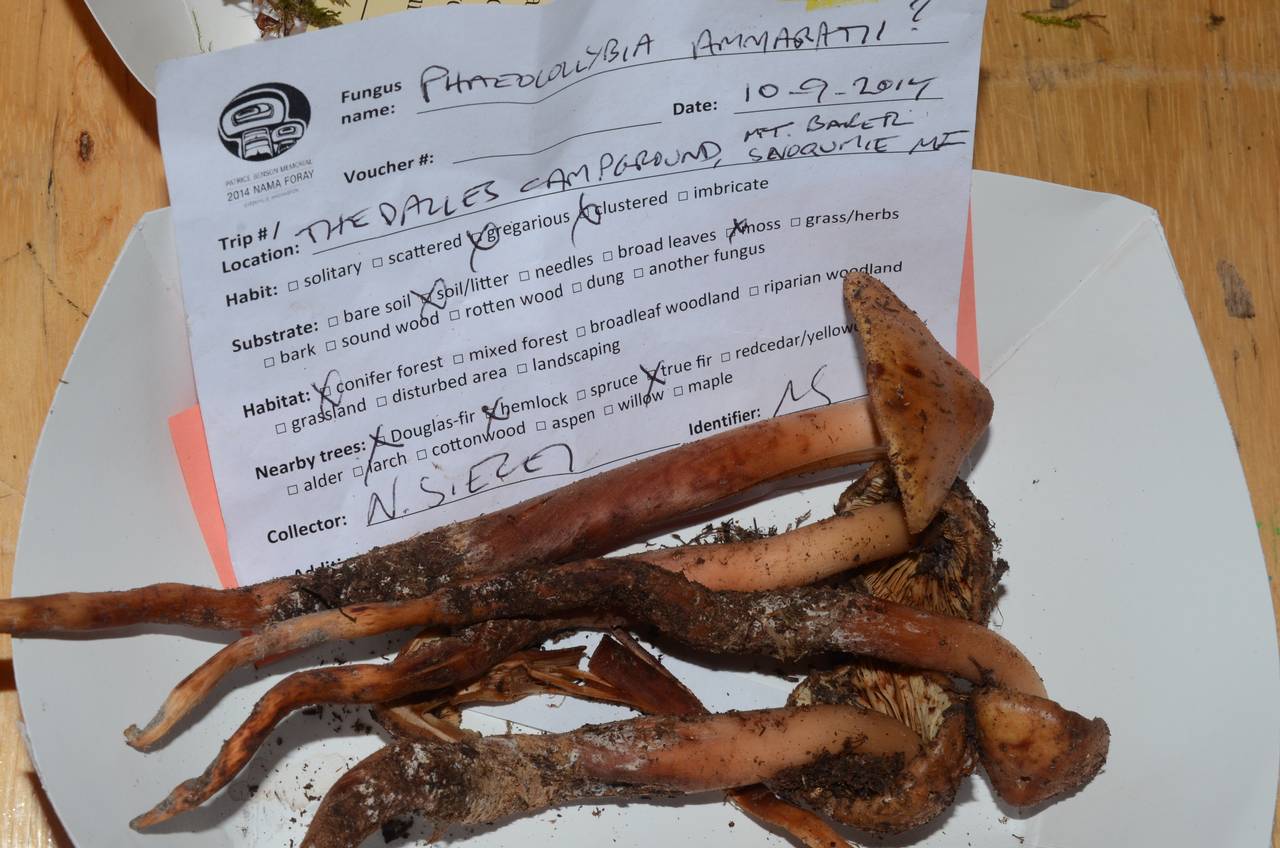 Fungus name: PHAEOCOLLYBIA AMMARATII?
PATRICE BENSON MEMORIAL
2014 NAMA FORAY
Voucher #: Date: 10-9-2014
Trip #/ Location: THE DALLES CAMPGROUND, MT. BAKER SNOQUMIE NF
Habit: □ solitary □ scattered ☒ gregarious ☒ clustered □ imbricate
Substrate: □ bare soil ☒ soil/litter □ needles □ broad leaves ☒ moss □ grass/herbs
□ bark □ sound wood □ rotten wood □ dung □ another fungus
Habitat: ☒ conifer forest □ mixed forest □ broadleaf woodland □ riparian woodland
□ grassland □ disturbed area □ landscaping
Nearby trees: ☒ Douglas-fir ☒ hemlock □ spruce ☒ true fir □ redcedar/yellow
□ alder □ larch □ cottonwood □ aspen □ willow □ maple
Collector: N. SIEGEL Identifier: NS